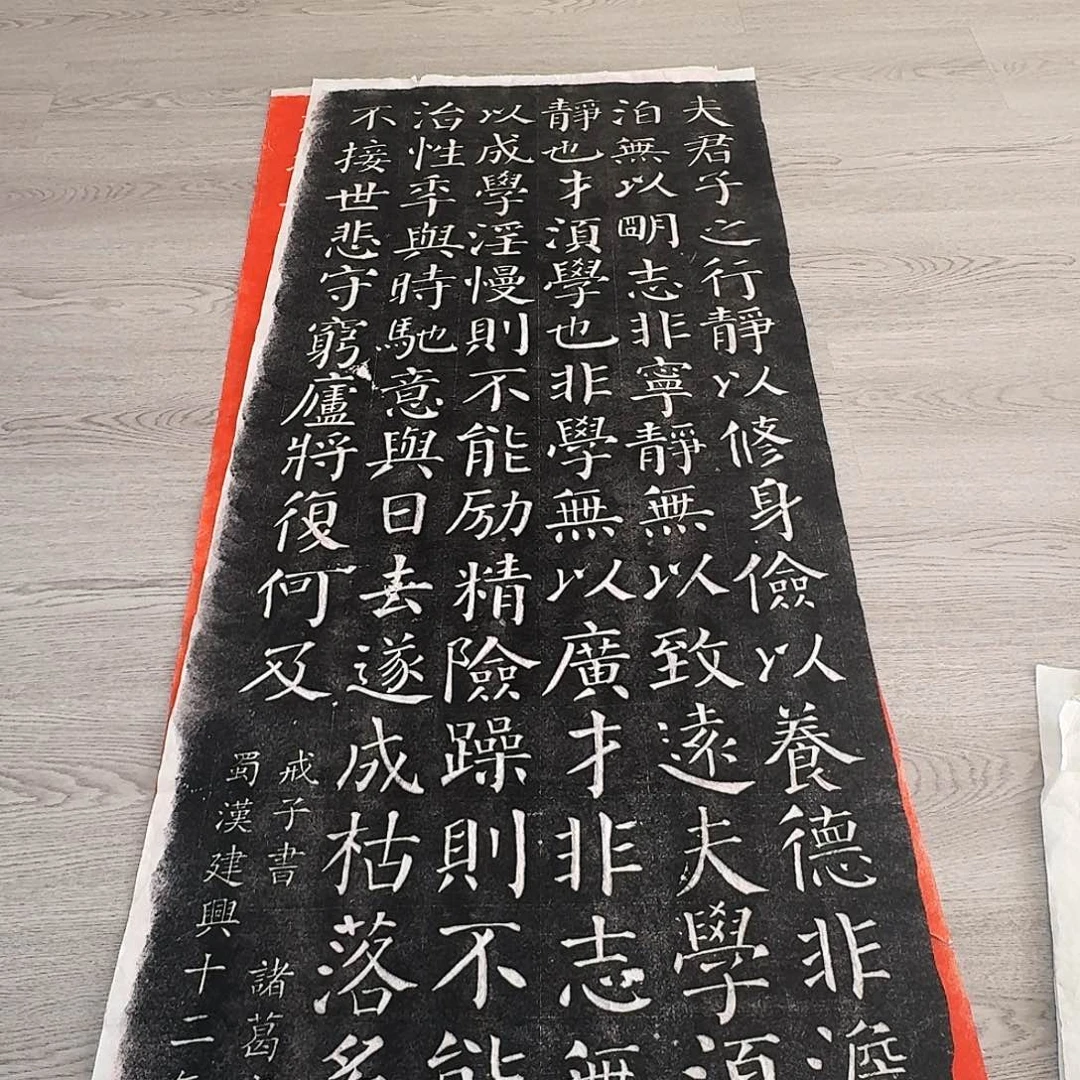 夫君子之行靜以修身儉以養德非
泊無以明志非寧靜無以致遠夫學須
靜也才須學也非學無以廣才非志無
以成學淫慢則不能励精險躁則不能
治性年與時馳意與日去遂成枯落多
不接世悲守窮廬將復何及
戒子書 諸葛
蜀漢建興十二